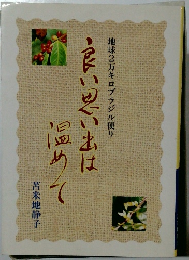 地球2万キロブラジル便り
良い思い出は
温めて
苫米地静子